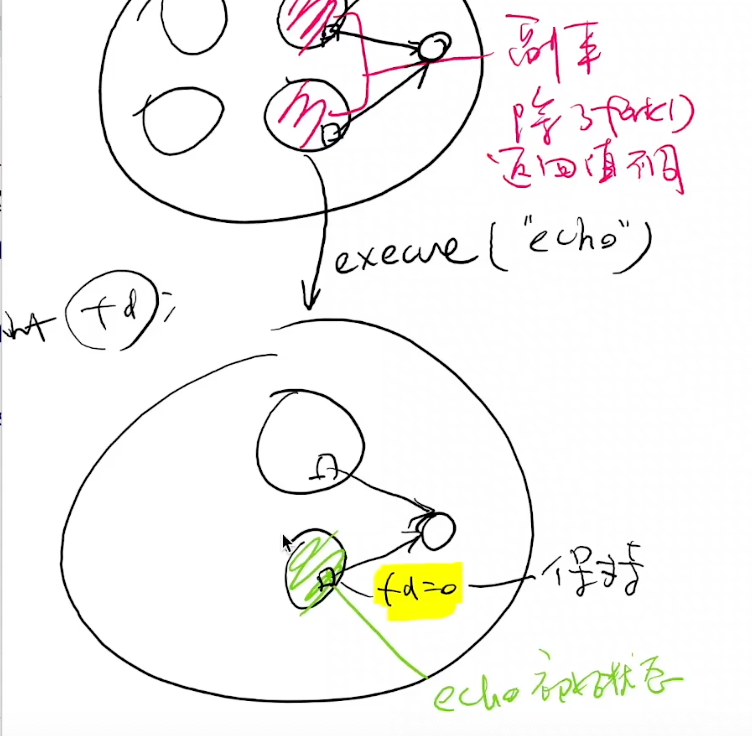 副本
除了fork()
返回值不同
execve("echo")
int fd;
fd=0
保持
echo 初始状态